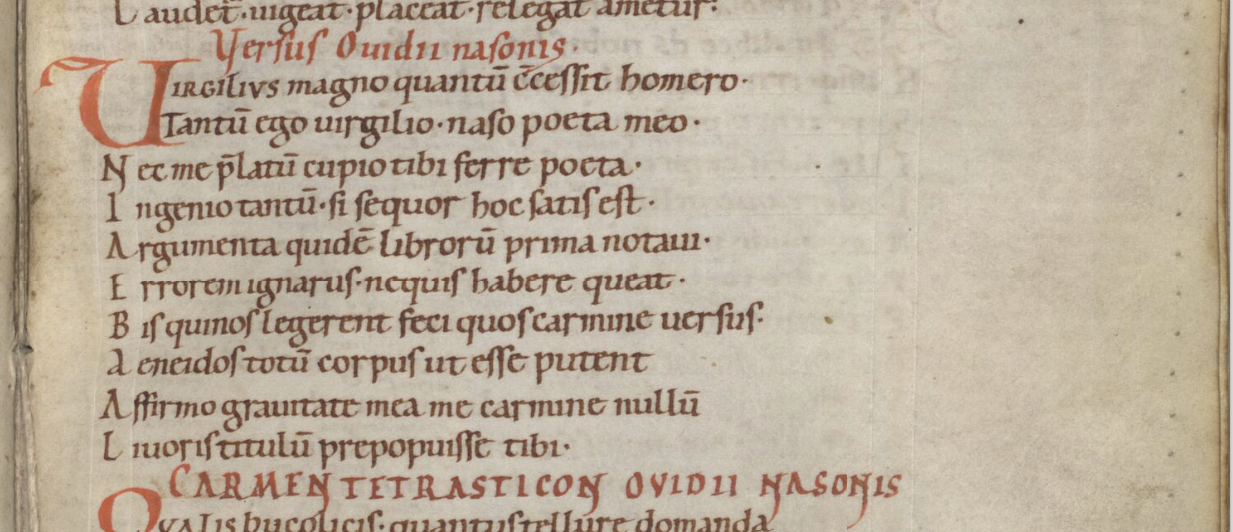 Laudet̄·uigeat·placeat·relegat ametur:
Versus Ouidii nasonis·
VIRGILIVS magno quantū c̄cessit homero·
Tantū ego uirgilio·naso poeta meo·
Nec me p̄latū cupio tibi ferre poeta·
Ingenio tantū·si sequor hoc satis est·
Argumenta quidē librorū prima notaui·
Errorem ignarus·nequis habere queat·
Bis quinos legerent feci quos carmine uersus·
Aeneidos totū corpus ut esse putent
Affirmo grauitate mea me carmine nullū
Liuoris titulū prepopuisse tibi·
CARMEN TETRASTICON OVIDII NASONIS
QVALIS bucolicis·quantus tellure domanda